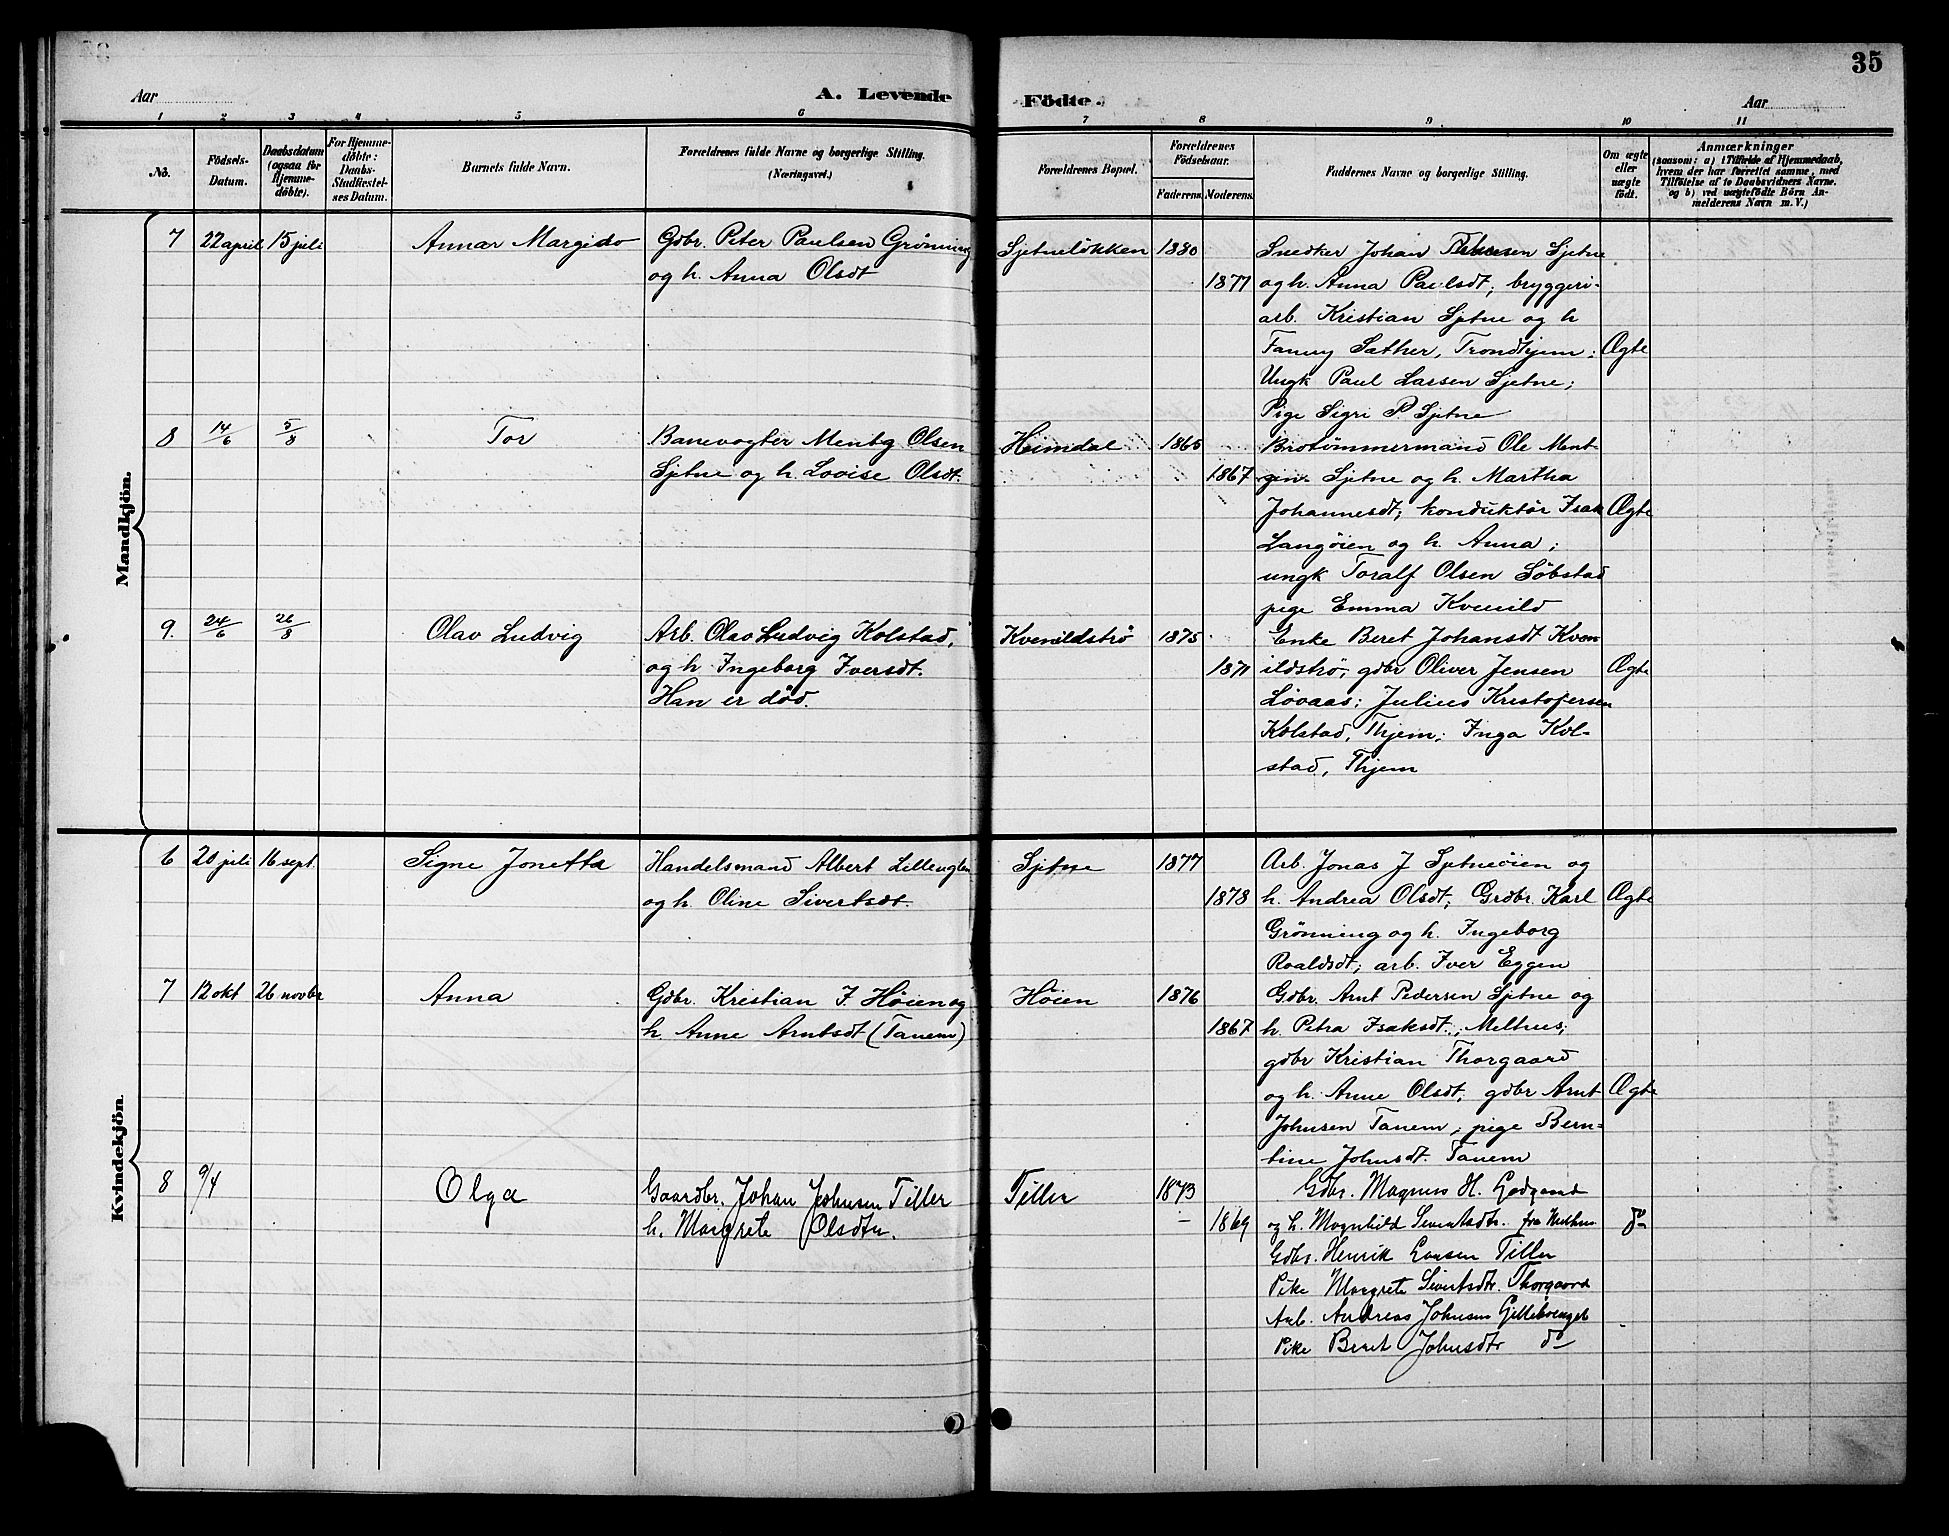 35
Aar
A. Levende
Födte.
Aar
1 2 3 4 5 6 7 8 9 10 11
No.
Födsels-Datum.
Daabsdatum (ogsaa for Hjemmedöbte).
For Hjemmedöbte: Daabs-Stadfæstelses Datum.
Barnets fulde Navn.
Forældrenes fulde Navne og borgerlige Stilling.
(Næringsvei.)
Forældrenes Bopæl.
Forældrenes Födselsaar.
Faderens.
Moderens.
Faddernes Navne og borgerlige Stilling.
Om ægte eller uægte födt.
Anmærkninger
(saasom: a) i Tilfælde af Hjemmedaab, hvem der har forrettet samme, med Tilföielse af to Daabsvidners Navne, og b) ved uægtefödte Börn Anmelderens Navn m. V.)
Mandkjön.
7 22 april 15 juli Annar Margido
Gdbr. Peter Paulsen Grönning
og h. Anna Olsdt
Sjetneløkken 1880
1877
Snedker Johan Sjetne
og h. Anna Paulsdt; bryggeri-
arb. Kristian Sjetne og h
Fanny Sæther, Trondhjem;
Ungk Paul Larsen Sjetne;
Pige Sigri P. Sjetne
Ægte
8 14/6 5/8 Tor
Banevogter Mentz Olsen
Sjetne og h. Lovise Olsdt.
Heimdal 1865
1867
Brotømmermand Ole Ment-
zen Sjetne og h. Martha
Johannesdt; konduktør Isak
Langøien og h. Anna;
ungk Toralf Olsen Søbstad
pige Emma Kvenild
Ægte
9. 24/6 26/8 Olav Ludvig
Arb. Olav Ludvig Kolstad,
og h Ingeborg Iversdt.
Han er død.
Kvenildstrø 1875
1871
Enke Beret Johansdt Kven
ildstrø; gdbr Oliver Jensen
Løvaas; Julius Kristofersen
Kolstad, Thjem; Inga Kol-
stad, Thjem
Ægte
Kvindekjön.
6 20 juli 16 sept. Signe Jonetta
Handelsmand Albert Lilleugten
og h. Oline Sivertsdt.
Sjetne 1877
1878
Arb. Jonas J Sjetneøien og
h. Andrea Olsdt; Grdbr. Karl
Grönning og h. Ingeborg
Roaldsdt; arb. Iver Eggen
Ægte
7 12 okt 26 novbr Anna
Gdbr. Kristian I. Høien og
h. Anne Arntsdt (Tanem)
Høien 1876
1867
Gdbr. Arnt Pedersen Sjetne og
h. Petra Isaksdt., Melhus;
gdbr Kristian Thorgaard
og h. Anne Olsdt; gdbr Arnt
Johnsen Tanem; pige Bern-
tine Johnsdt. Tanem
Ægte
8 9/4 Olga
Gaardbr. Johan Johnsen Tiller
h. Margrete Olsdtr.
Tiller 1873
– 1869
Gdbr. Magnus H.
og h. Magnhild Sivertsdtr. fra Melhus
Gdbr. Henrik Larsen Tiller
Pike Margrete Sivertsdtr. Thorgaard
Arb. Andreas Johnsen
Pike Beret Johnsdtr do
do